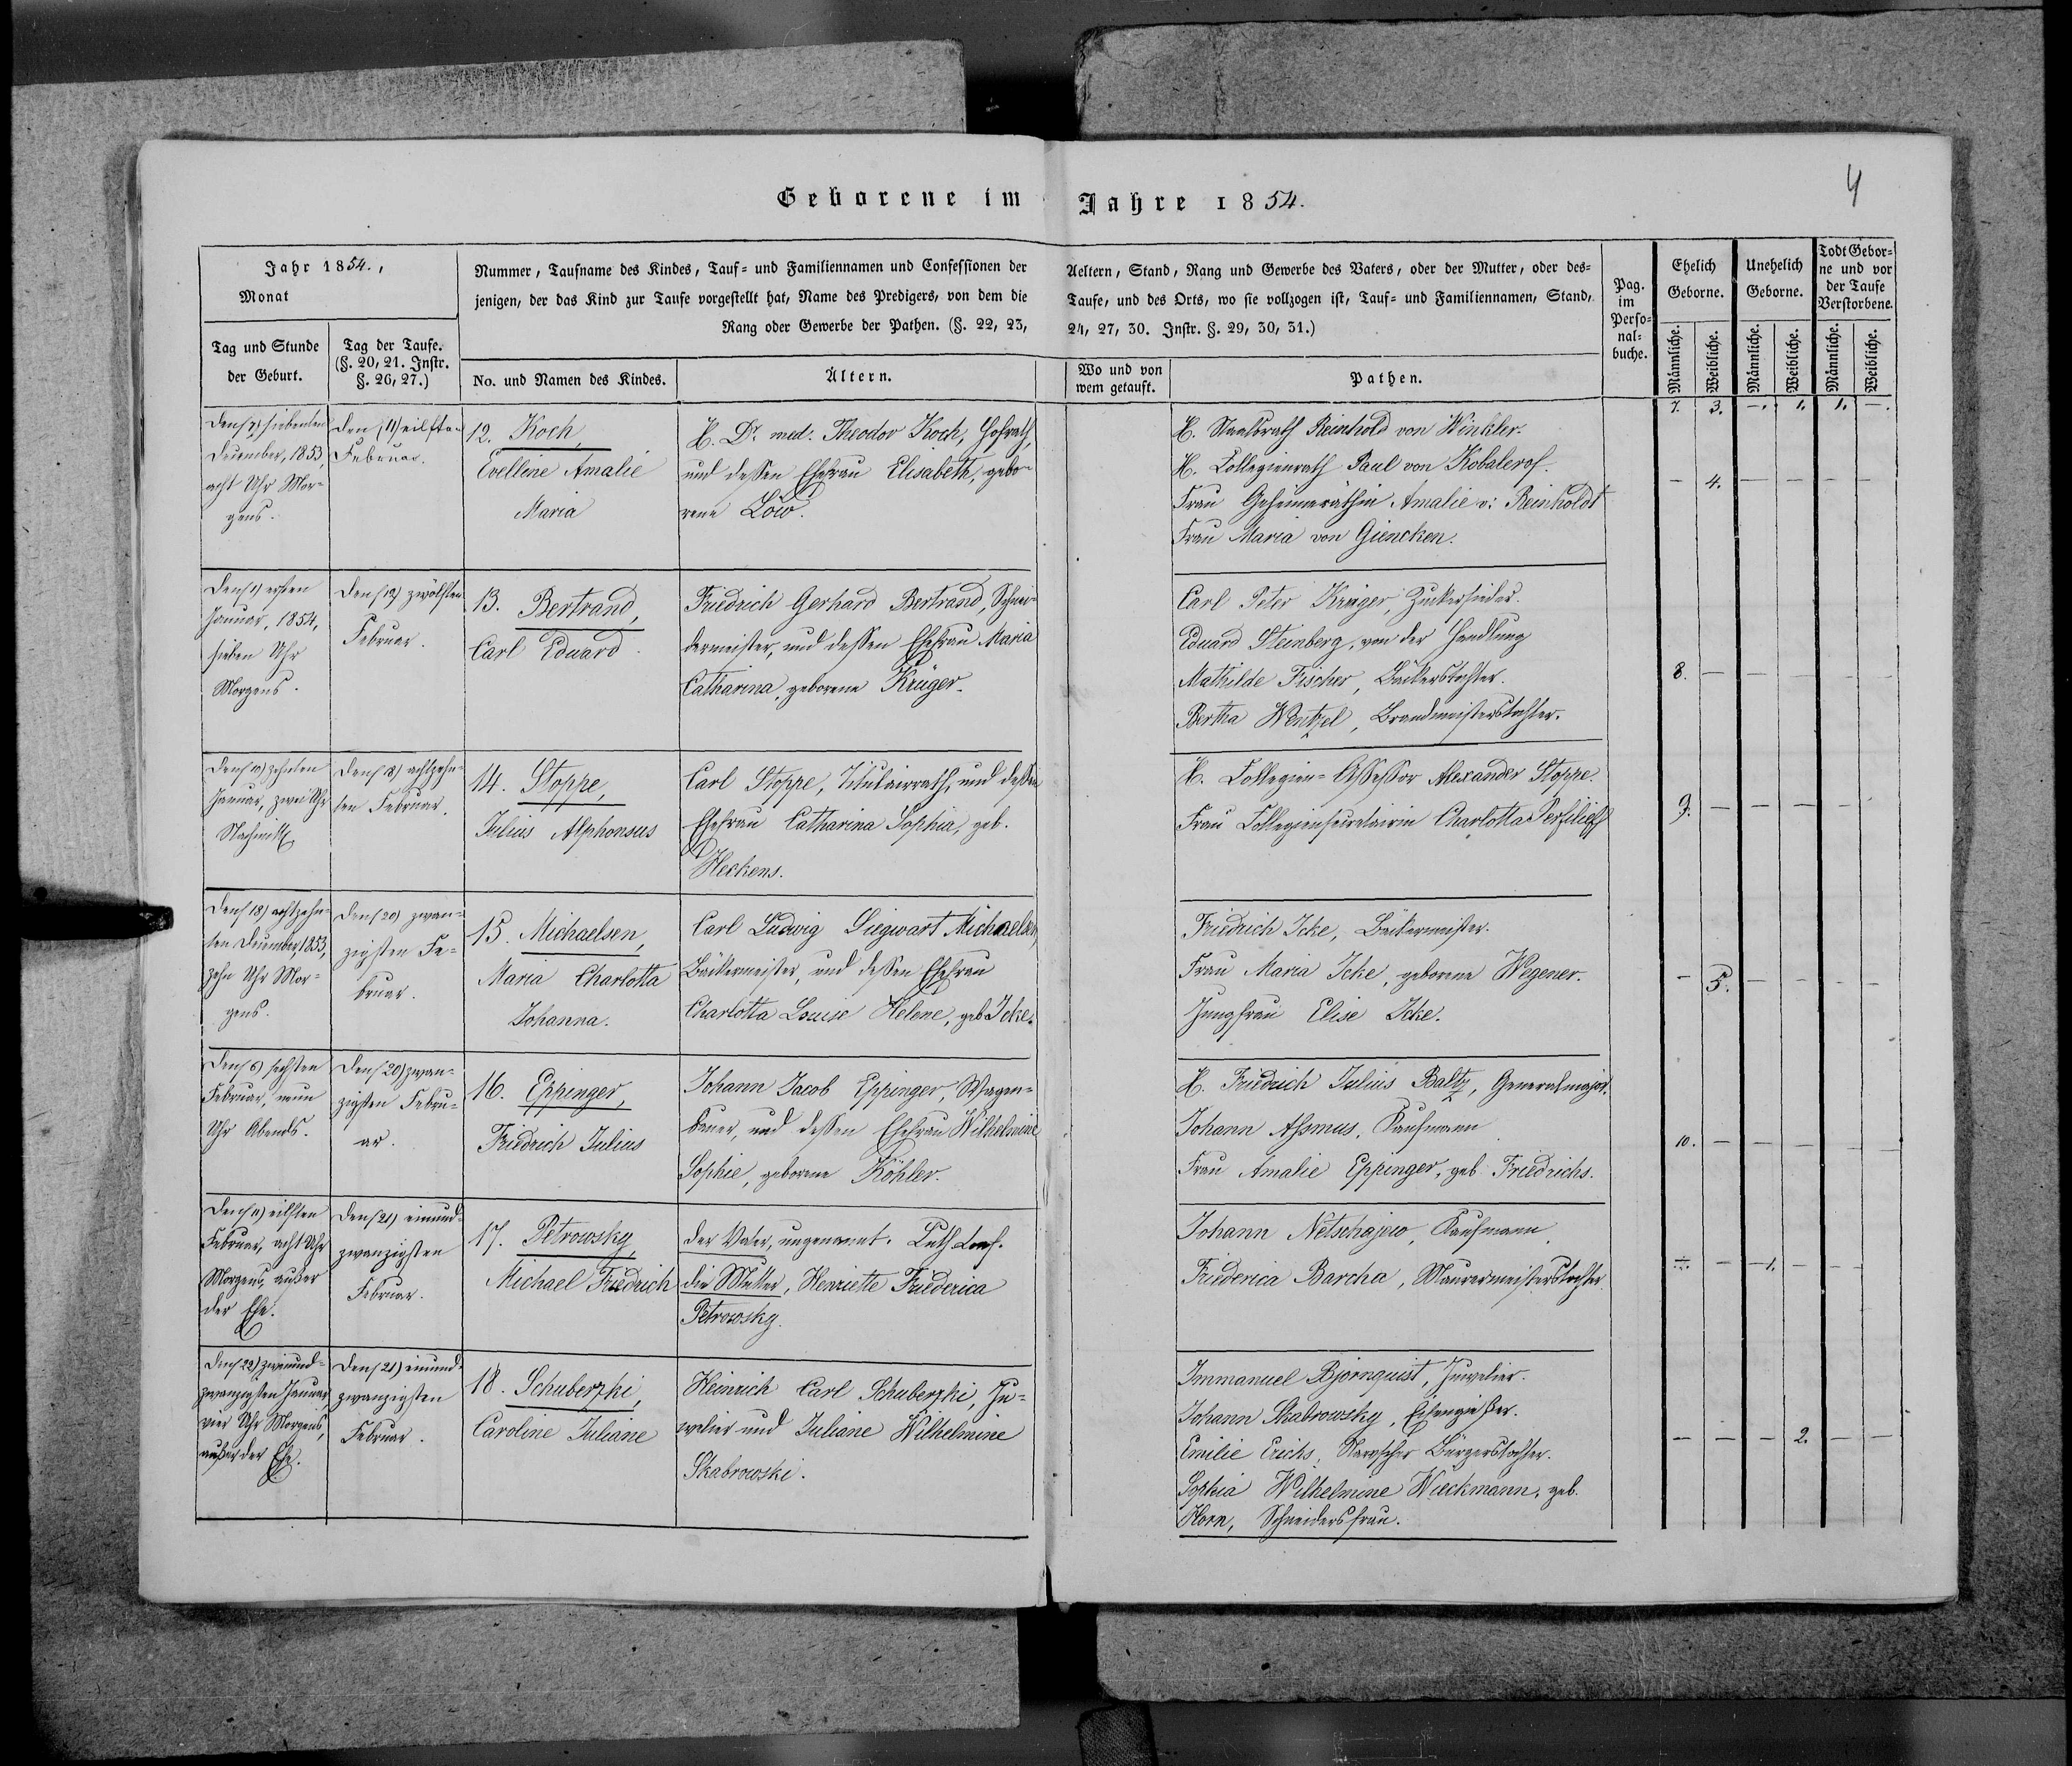 4
Geborene im Jahre 1854.
Jahr 1854.,
Monat
Nummer, Taufname des Kindes, Tauf= und Familiennamen und Confessionen der Aeltern, Stand, Rang und Gewerbe des Vaters, oder der Mutter, oder des=
jenigen, der das Kind zur Taufe vorgestellt hat, Name des Predigers, von dem die Taufe, und des Orts, wo sie vollzogen ist, Tauf= und Familiennamen, Stand,
Rang oder Gewerbe der Pathen. (§. 22, 23, 24, 27, 30. Instr. §. 29, 30, 31.)
Pag.
im
Perso=
nal=
buche.
Ehelich
Geborne.
Unehelich
Geborne.
Todt Gebor=
ne und vor
der Taufe
Verstorbene.
Tag und Stunde
der Geburt.
Tag der Taufe.
(§. 20, 21. Instr.
§. 26, 27.)
No. und Namen des Kindes.
Ältern.
Wo und von
wem getauft.
Pathen.
Männliche.
Weibliche.
Männliche.
Weibliche.
Männliche.
Weibliche.
7. 3. —. 1. 1. —.
Den (7) siebenten
December, 1853,
acht Uhr Mor=
gens.
Den (11) eilften
Februar.
12. Koch,
Evelline Amalie
Maria
H. Dr. med: Theodor Koch, Hofrath,
und dessen Ehefrau Elisabeth, gebo=
rene Löw.
H. Staatsrath Reinhold von Winkler.
H. Collegienrath Paul von Kobalerof.
Frau Geheimeräthin Amalie v: Reinholdt
Frau Maria von Giencken.
— 4. — — — —
Den (1) ersten
Januar, 1854,
sieben Uhr
Morgens.
Den (12) zwölften
Februar.
13. Bertrand,
Carl Eduard.
Friedrich Gerhard Bertrand, Schnei=
dermeister, und dessen Ehefrau Maria
Catharina, geborene Krüger.
Carl Peter Krüger, Zuckersieder.
Eduard Steinberg, von der Handlung
Mathilde Fischer, Bäckerstochter.
Bertha Wentzel, Brandmeisterstochter.
8. — — — — —
Den (10) zehnten
Januar, zwei Uhr
Nachmitt
Den (18) achtzehn=
ten Februar.
14. Stoppe,
Julius Alphonsus
Carl Stoppe, Titulairrath, und dessen
Ehefrau Catharina Sophia, geb.
Heckens.
H. Collegien=Assessor Alexander Stoppe.
Frau Collegiensecretairin Charlotta Perfilieff
9. — — — — —
Den (18) achtzehn=
ten December, 1853,
zehn Uhr Mor=
gens.
Den (20) zwan=
zigsten Fe=
bruar.
15. Michaelsen,
Maria Charlotta
Johanna.
Carl Ludwig Siegwart Michaelsen,
Bäckermeister, und dessen Ehefrau
Charlotta Louise Helene, geb. Icke.
Friedrich Icke, Bäckermeister.
Frau Maria Icke, geborene Wegener.
Jungfrau Elise Icke.
— 5. — — — —
Den (6) sechsten
Februar, neun
Uhr Abends.
Den (20) zwan=
zigsten Febru=
ar.
16. Eppinger,
Friedrich Julius
Johann Jacob Eppinger, Wagen=
bauer, und dessen Ehefrau Wilhelmine
Sophie, geborene Köhler.
H. Friedrich Julius Baltz, Generalmajor.
Johann Assmus, Kaufmann
Frau Amalie Eppinger, geb. Friedrichs.
10. — — — — —
Den (11) eilften
Februar, acht Uhr
Morgens, außer
der Ehe.
Den (21) einund=
zwanzigsten
Februar.
17. Petrowsky,
Michael Friedrich
Der Vater, ungenannt. Luth. Conf.
die Mutter, Henriette Friederica
Petrowsky.
Johann Netschajew, Kaufmann.
Friederica Barcha, Maurermeisterstochter.
— — 1. — — —
Den (22) zweiund=
zwanzigsten Januar,
vier Uhr Morgens,
außer der Ehe.
Den (21) einund=
zwanzigsten
Februar.
18. Schuberzki,
Caroline Juliane
Heinrich Carl Schuberzki, Ju=
welier und Juliane Wilhelmine
Skabrowski.
Immanuel Bjornquist, Juwelier.
Johann Skabrowsky, Eisengießer.
Emilie Erichs, Narvscher Bürgerstochter.
Sophia Wilhelmine Wieckmann, geb.
Horn, Schneidersfrau.
— — — 2. — —